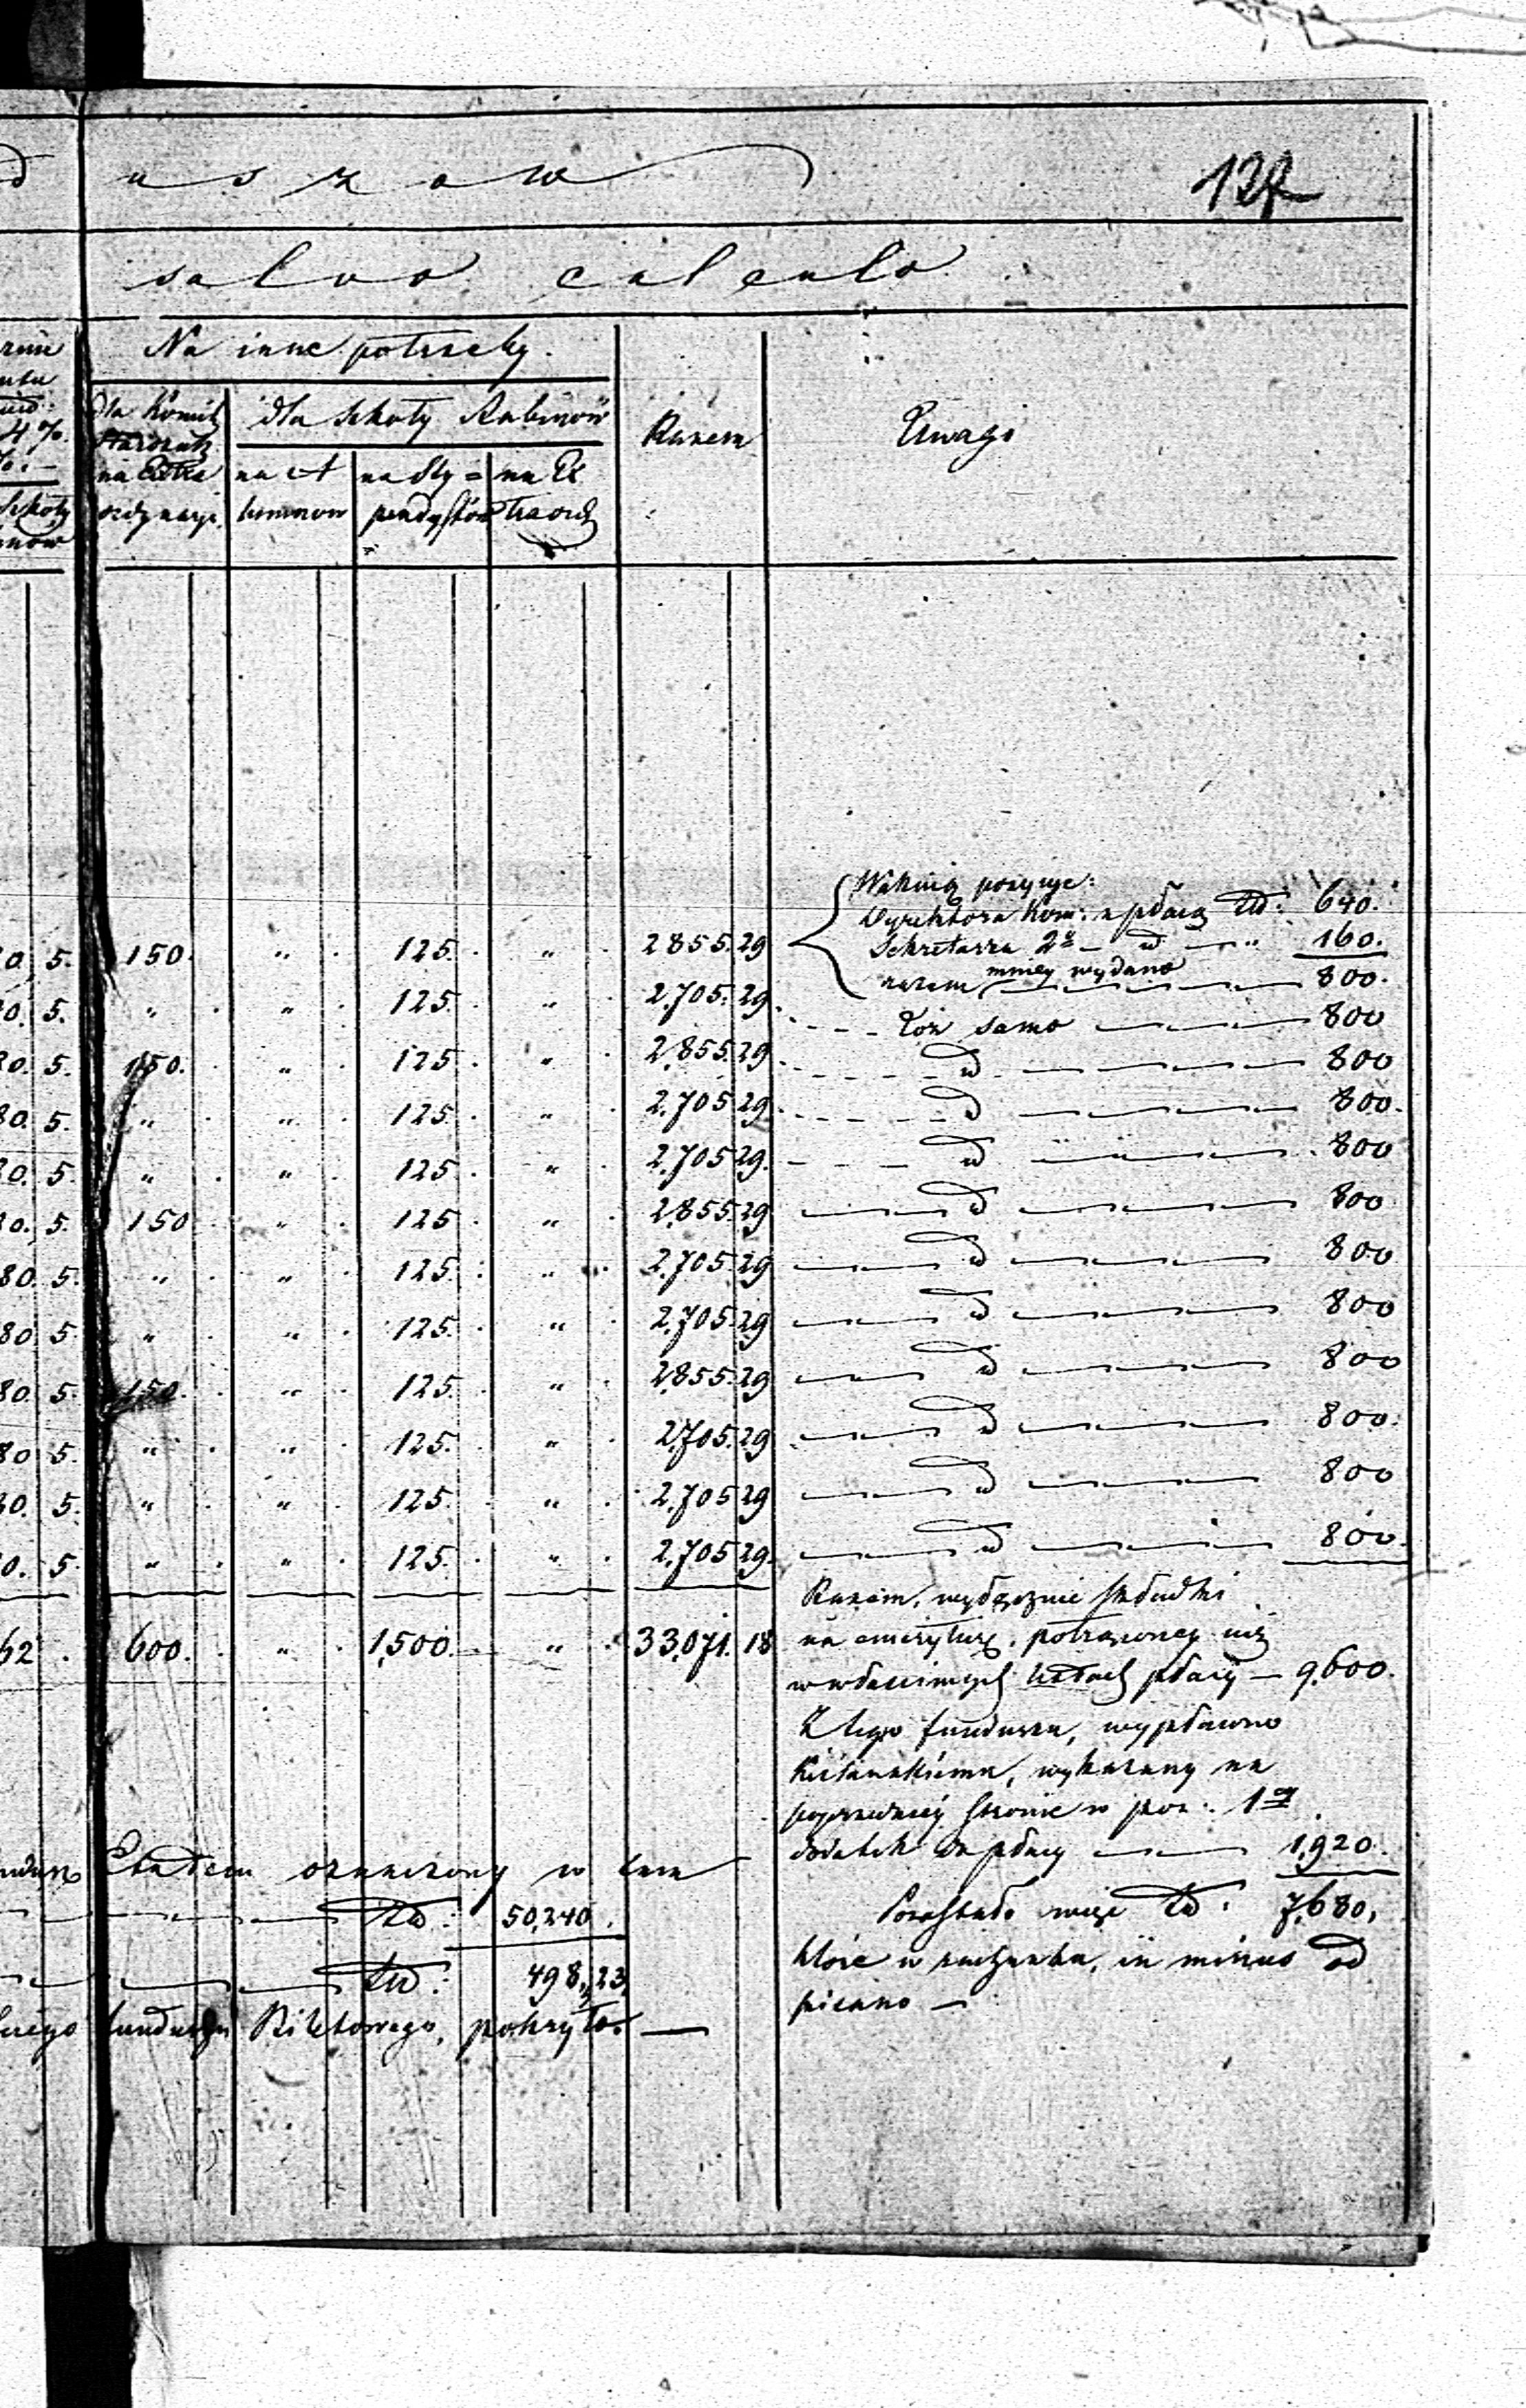 d u s z o w
127
salvo calculo
Na inne potrzeby.
dla Komit
Starozak
na Extra
ordynacje.
dla Szkoły Rabinów
na A
lumnow
na Sty=
pendystów
na Ex
traord
Razem
Uwagi
4 %.
Szkoły
inow
Wakują pozycye:
Dyrektora Kom: z płacą Złł: 640.
Sekretarza 2o — d — " 160.
razem mniey wydano 800.
0. 5. 150. " 125. " 2855. 29
0. 5. " " 125. " 2,705. 29 Toż samo 800
0. 5. 150. " 125. " 2,855. 29 d 800
80. 5. " " 125. " 2,705 29 d 800.
0. 5. " " 125 " 2,705 29. d 800
0. 5. 150 " 125 " 2,855. 29 d 800
80. 5. " " 125. " 2,705. 29 d 800
80. 5. " " 125. " 2,705. 29 d 800
80. 5. 150. " 125. " 2,855. 29 d 800
80 5. " " 125. " 2,705. 29 d 800.
0. 5. " " 125. " 2,705 29 d 800
0. 5. " " 125. " 2,705 29. d 800.
62 . 600. " 1,500. " 33,071. 18
Razem, wyłącznie składki
na emeryturę, potrąconey iuż
w właściwych płacy — 9,600.
Z tego funduszu, wypłacono
wykazany na
poprzedniey stronie w poz: 1ey
dodatek do płacy 1,920.
Pozostało więc Złł: 7,680,
które w rachunku, in minus od
pisano —
Etatem oznaczony w
Złł: 50,240.
Złł: 498. 23.
funduszu Biletowego, pokryto. —